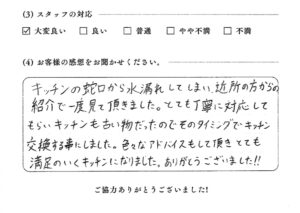 (3) スタッフの対応
☑ 大変良い □ 良い □ 普通 □ やや不満 □ 不満
(4) お客様の感想をお聞かせください。
キッチンの蛇口から水漏れしてしまい、近所の方からの
紹介で一度見て頂きました。とても丁寧に対応して
もらいキッチンも古い物だったのでそのタイミングでキッチン
交換する事にしました。色々なアドバイスもして頂きとても
満足のいくキッチンになりました。ありがとうございました!!
ご協力ありがとうございました!